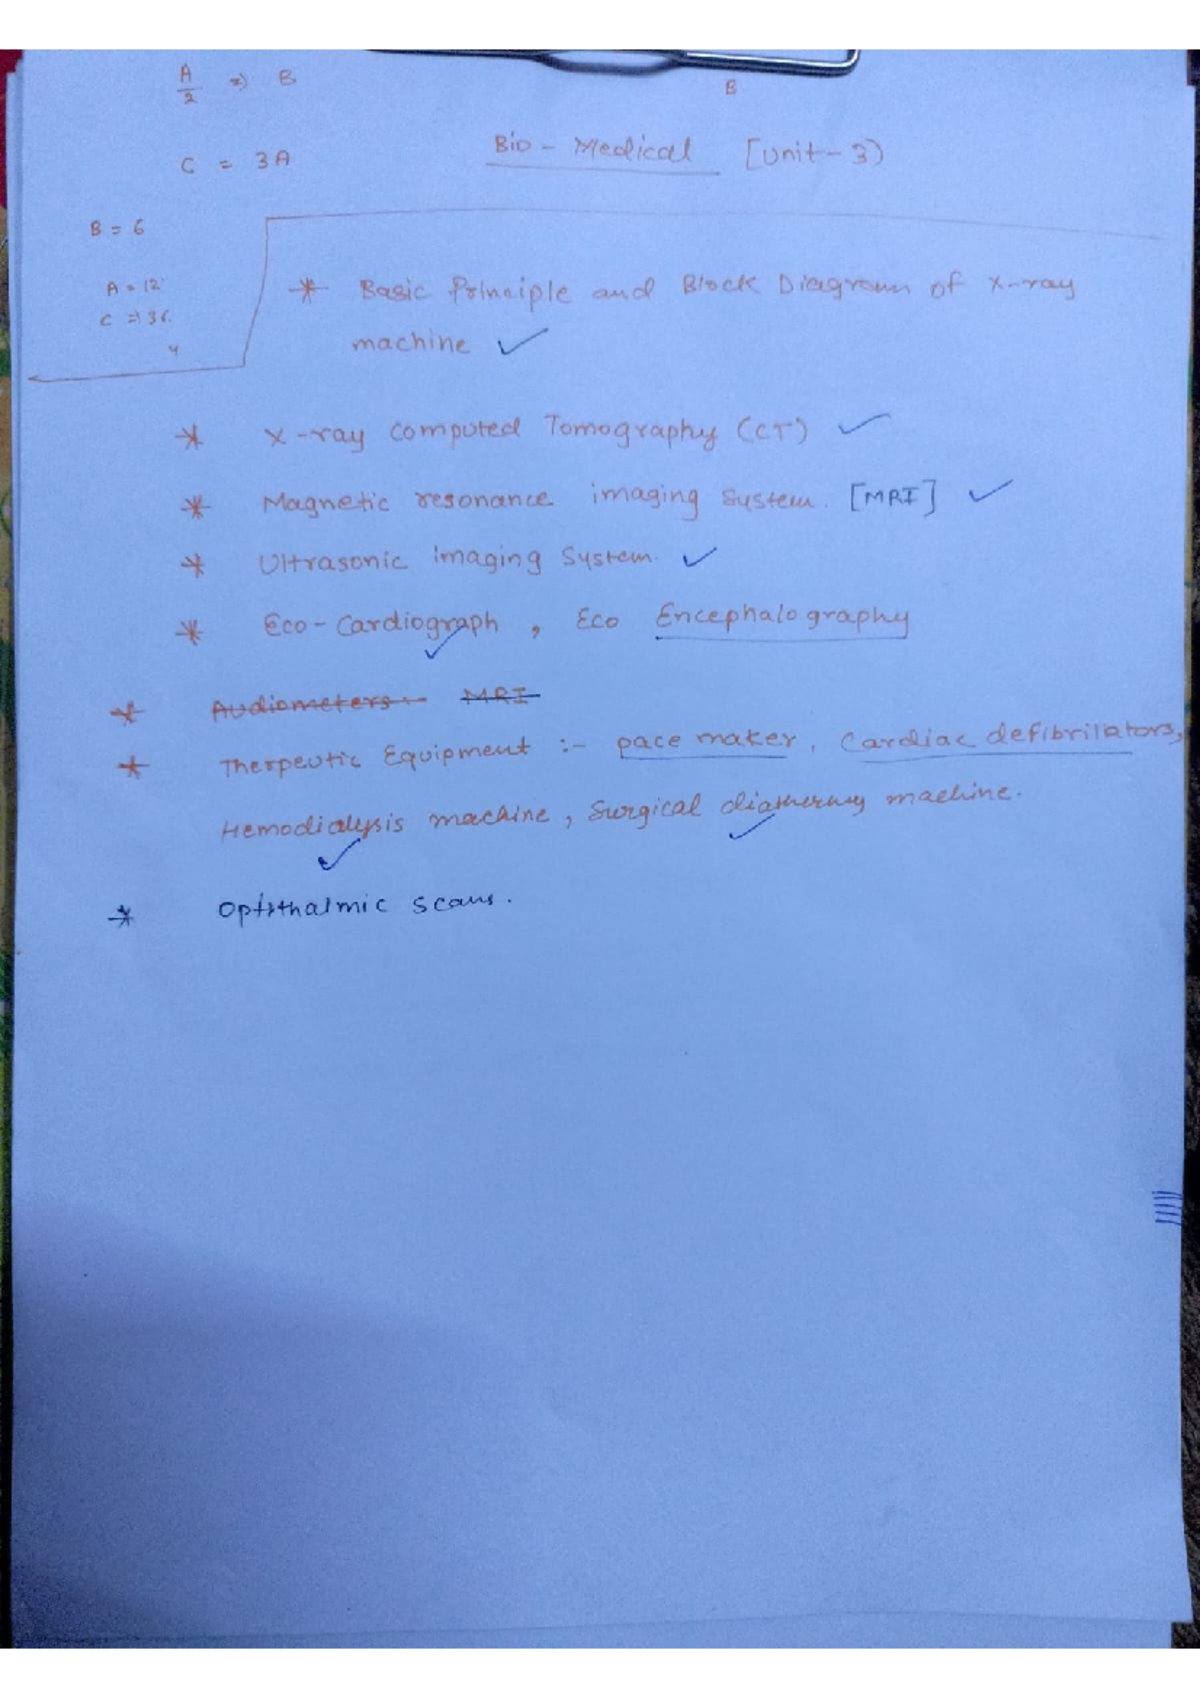 A/2 => B
B
C = 3A
Bio - Medical [Unit - 3)
B = 6
A = 12
C => 36.
4
* Basic Principle and Block Diagram of X-ray
machine ✓
* X-ray computed Tomography (CT) ✓
* Magnetic resonance imaging System. [MRI] ✓
* Ultrasonic imaging System. ✓
* Eco-Cardiograph, Eco Encephalography
* Audiometers:- MRI
* Therpeutic Equipment :- pace maker, Cardiac defibrillators,
Hemodialysis machine, Surgical diathermy machine.
* Opththalmic scans.